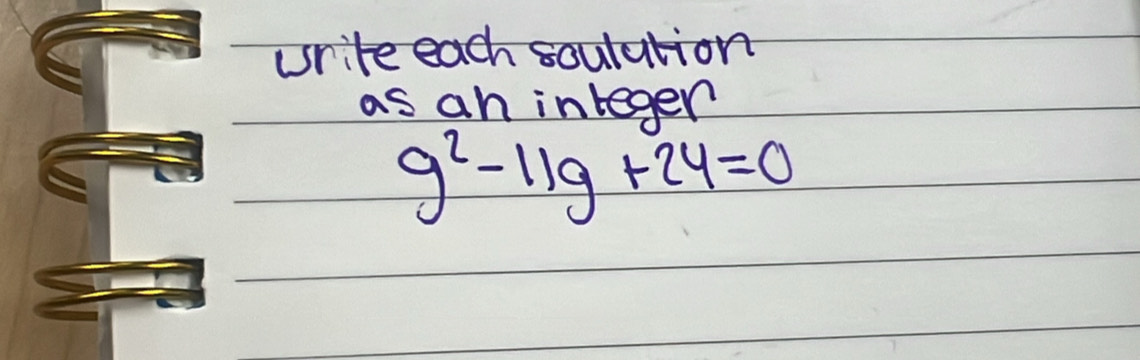 write each soulution
as an integer
g² - 11g + 24 = 0